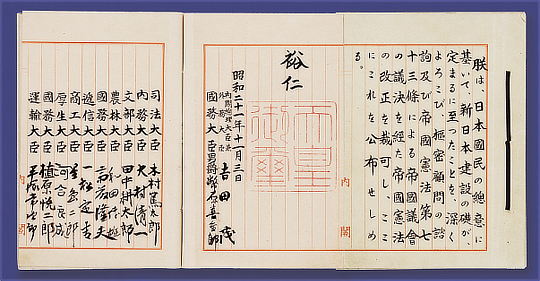 朕は、日本國民の總意に
基いて、新日本建設の礎が、
定まるに至つたことを、深く
よろこび、樞密顧問の諮
詢及び帝國憲法第七
十三條による帝國議會
の議決を経た帝國憲法
の改正を裁可し、ここ
にこれを公布せしめ
る。
内閣
裕仁
天皇御璽
昭和二十一年十一月三日
内閣總理大臣兼
外務大臣 吉田茂
國務大臣 男爵 幣原喜重郎
司法大臣 木村篤太郎
内務大臣 大村清一
文部大臣 田中耕太郎
農林大臣 和田博雄
國務大臣 斎藤隆夫
遞信大臣 一松定吉
商工大臣 星島二郎
厚生大臣 河合良成
國務大臣 植原悦二郎
運輸大臣 平塚常次郎